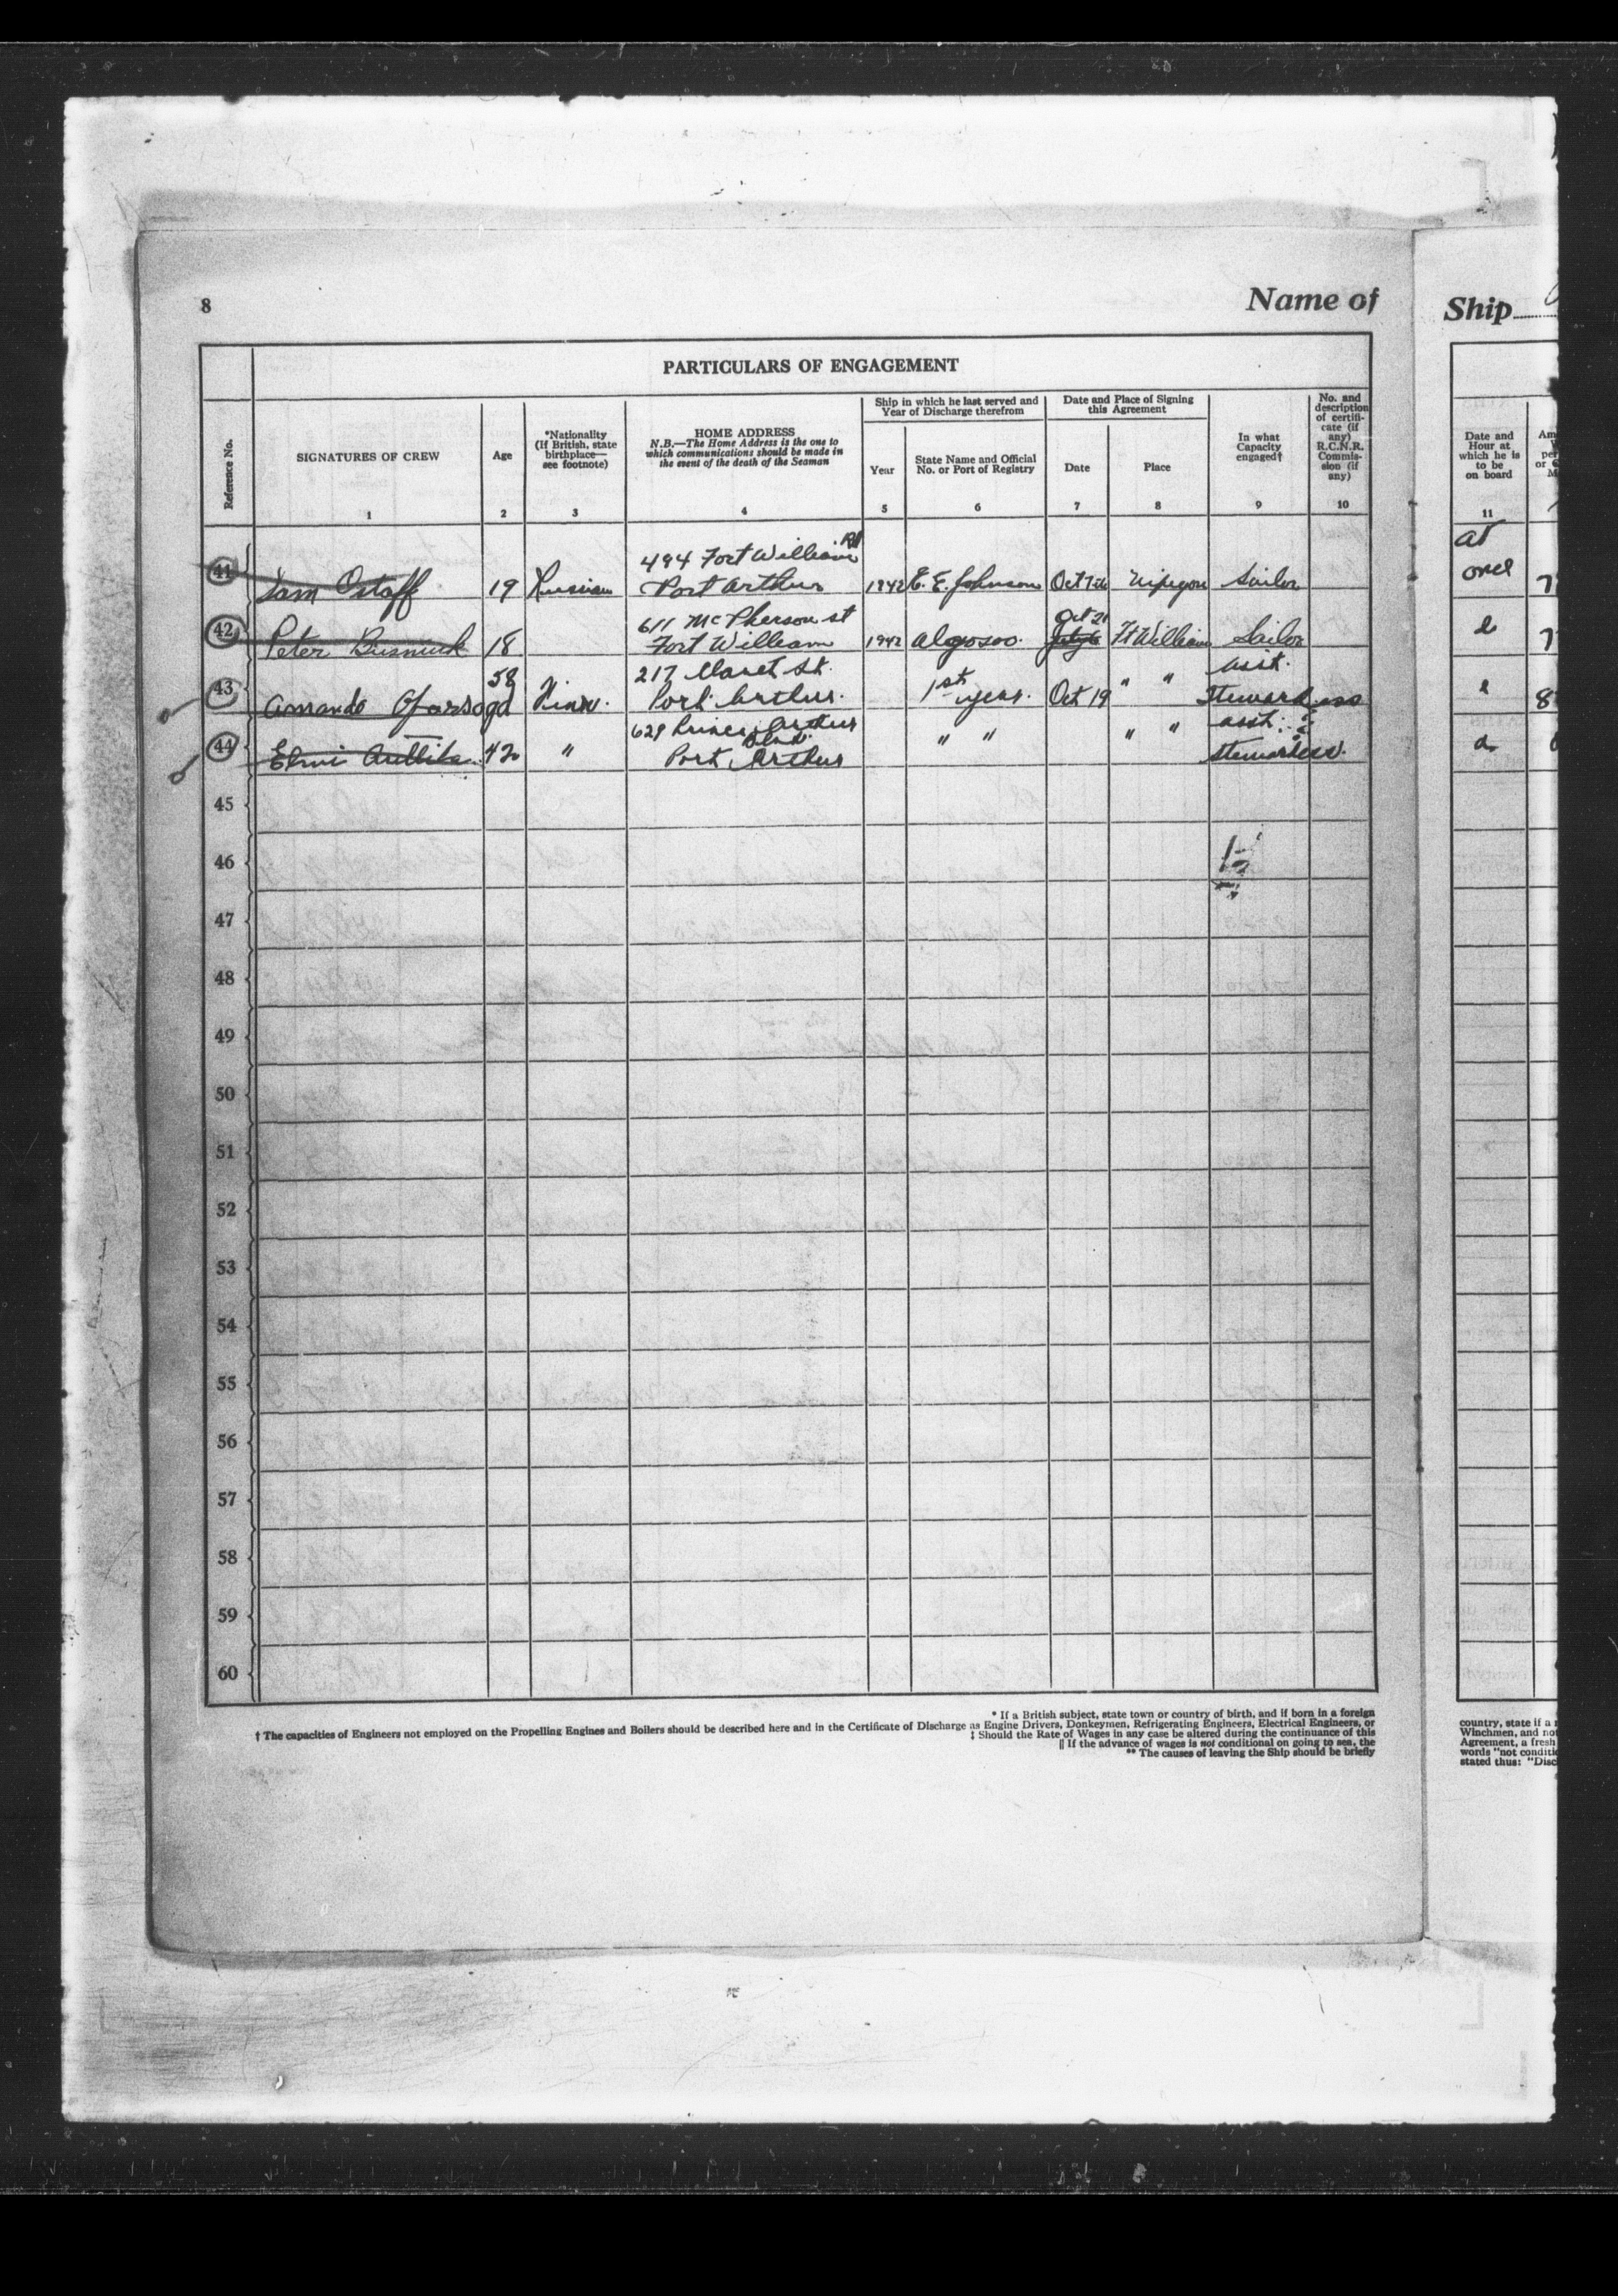 8
Name of
Ship
PARTICULARS OF ENGAGEMENT
Reference No.
SIGNATURES OF CREW
1
Age
2
*Nationality
(If British, state
birthplace—
see footnote)
3
HOME ADDRESS
N.B.—The Home Address is the one to
which communications should be made in
the event of the death of the Seaman
4
Ship in which he last served and
Year of Discharge therefrom
Year
5
State Name and Official
No. or Port of Registry
6
Date and Place of Signing
this Agreement
Date
7
Place
8
In what
Capacity
engaged†
9
No. and
description
of certifi-
cate (if
any)
R.C.N.R.
Commis-
sion (if
any)
10
Date and
Hour at
which he is
to be
on board
11
494 Fort William Rd
at
41 Sam Ostaff 19 Russian Port Arthur 1942 E. E. Johnson Oct 7th Nipigon Sailor once
611 McPherson st Oct 21
42 Peter 18 Fort William 1942 Algosoo Ft William Sailor
58 217 St. asst.
43 Port Arthur. 1st year. Oct 19 " " Stewardess 8
629 Prince Arthur asst.
Blvd.
44 42 " Port Arthur " " " " Stewardess.
45
46
47
48
49
50
51
52
53
54
55
56
57
58
59
60
* If a British subject, state town or country of birth, and if born in a foreign
† The capacities of Engineers not employed on the Propelling Engines and Boilers should be described here and in the Certificate of Discharge as Engine Drivers, Donkeymen, Refrigerating Engineers, Electrical Engineers, or
‡ Should the Rate of Wages in any case be altered during the continuance of this
|| If the advance of wages is not conditional on going to sea, the
** The causes of leaving the Ship should be briefly
country, state if a
Winchmen, and not
Agreement, a fresh
words "not conditi
stated thus: "Disc